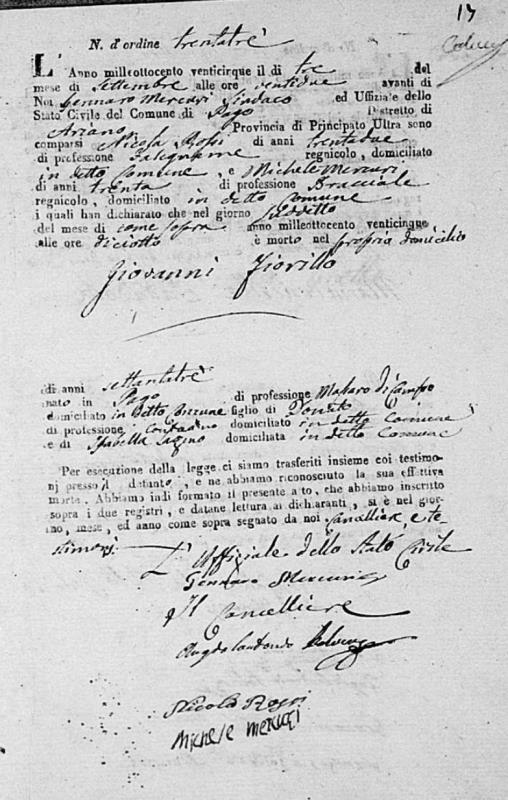 17
N. d'ordine trentatrè
L'Anno milleottocento venticinque il di tre del
mese di Settembre alle ore ventidue avanti di
Noi Gennaro Mercuri Sindaco ed Uffiziale dello
Stato Civile del Comune di Pago Distretto di
Ariano Provincia di Principato Ultra sono
comparsi Nicola Rossi di anni trentadue
di professione Falegname regnicolo, domiciliato
in detto Comune, e Michele Mercuri
di anni trenta di professione Bracciale
regnicolo, domiciliato in detto Comune
i quali han dichiarato che nel giorno suddetto
del mese di come sopra anno milleottocento venticinque
alle ore diciotto è morto nel proprio domicilio
Giovanni Fiorillo
di anni settantatrè
nato in Pago di professione di Campo
domiciliato in Detto Comune figlio di Donato
di professione Contadino domiciliato in detto Comune
e di Isabella domiciliata in detto Comune
Per esecuzione della legge ci siamo trasferiti insieme coi testimo-
nj presso il defunto, e ne abbiamo riconosciuto la sua effettiva
morte. Abbiamo indi formato il presente atto, che abbiamo inscritto
sopra i due registri, e datane lettura ai dichiaranti, si è nel gior-
no, mese, ed anno come sopra segnato da noi Cancelliere, e te-
stimonj.
L'Uffiziale dello Stato Civile
Gennaro Mercuri
Il Cancelliere
Nicola Rossi
Michele Mercuri